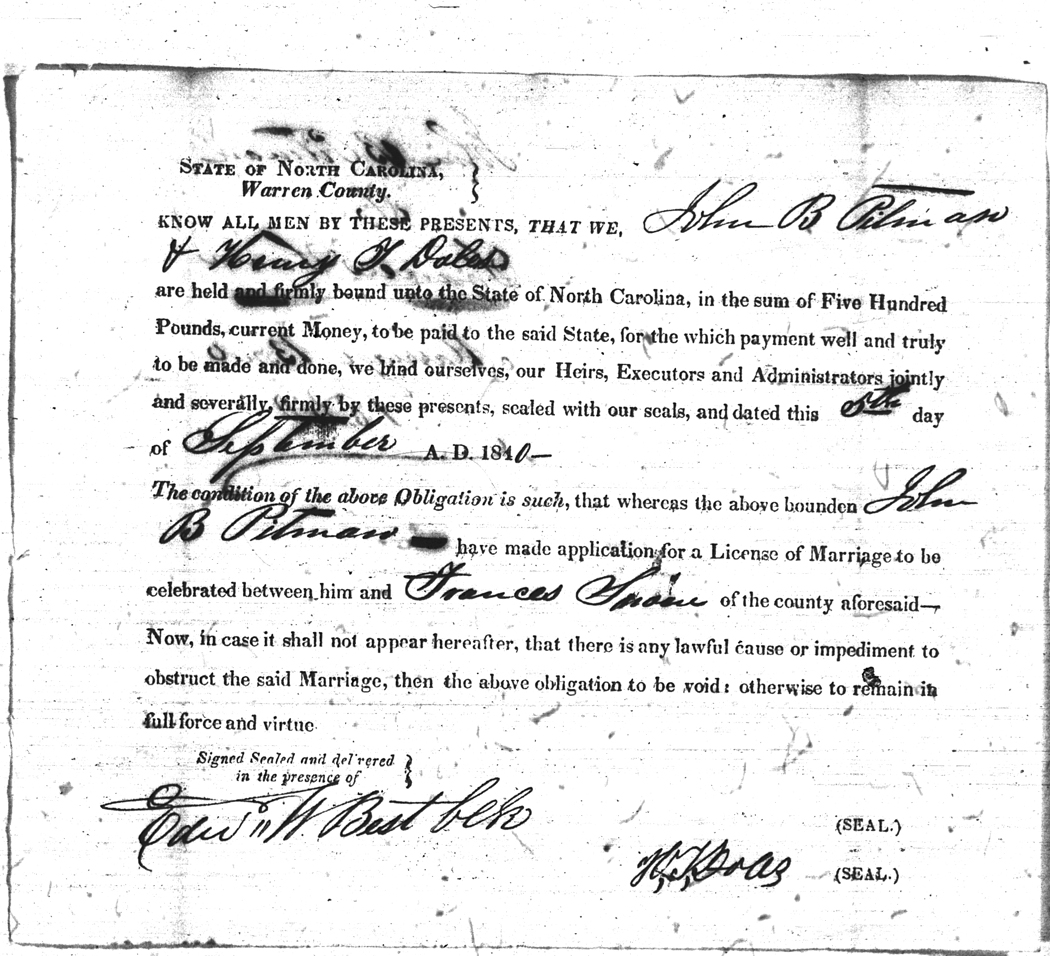 STATE OF NORTH CAROLINA,
Warren County.
KNOW ALL MEN BY THESE PRESENTS, THAT WE, John B Pitman
& Henry T Doles
are held and firmly bound unto the State of North Carolina, in the sum of Five Hundred
Pounds, current Money, to be paid to the said State, for the which payment well and truly
to be made and done, we bind ourselves, our Heirs, Executors and Administrators jointly
and severally, firmly by these presents, sealed with our seals, and dated this 5th day
of September A. D. 1840—
The condition of the above Obligation is such, that whereas the above bounden John
B Pitman have made application for a License of Marriage to be
celebrated between him and Frances of the county aforesaid—
Now, in case it shall not appear hereafter, that there is any lawful cause or impediment to
obstruct the said Marriage, then the above obligation to be void: otherwise to remain in
full force and virtue
Signed Sealed and delivered
in the presence of
Edwin W Best Clk
(SEAL.)
H, T, (SEAL.)